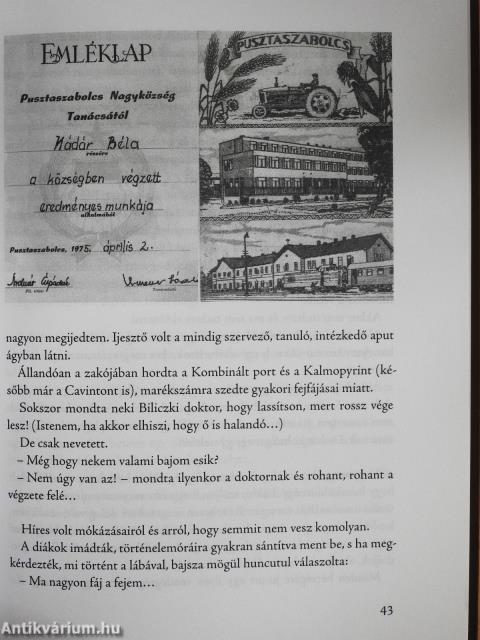 EMLÉKLAP
Pusztaszabolcs Nagyközség
Tanácsától
Nádár Béla
részére
a községben végzett
eredményes munkája
alkalmából
Pusztaszabolcs, 1975. április 2.
PUSZTASZABOLCS
nagyon megijedtem. Ijesztő volt a mindig szervező, tanuló, intézkedő aput
ágyban látni.
Állandóan a zakójában hordta a Kombinált port és a Kalmopyrint (ké-
sőbb már a Cavintont is), marékszámra szedte gyakori fejfájásai miatt.
Sokszor mondta neki Biliczki doktor, hogy lassítson, mert rossz vége
lesz! (Istenem, ha akkor elhiszi, hogy ő is halandó…)
De csak nevetett.
– Még hogy nekem valami bajom esik?
– Nem úgy van az! – mondta ilyenkor a doktornak és rohant, rohant a
végzete felé…
Híres volt mókázásairól és arról, hogy semmit nem vesz komolyan.
A diákok imádták, történelemóráira gyakran sántítva ment be, s ha meg-
kérdezték, mi történt a lábával, bajsza mögül huncutul válaszolta:
– Ma nagyon fáj a fejem…
43
Antikvárium.hu